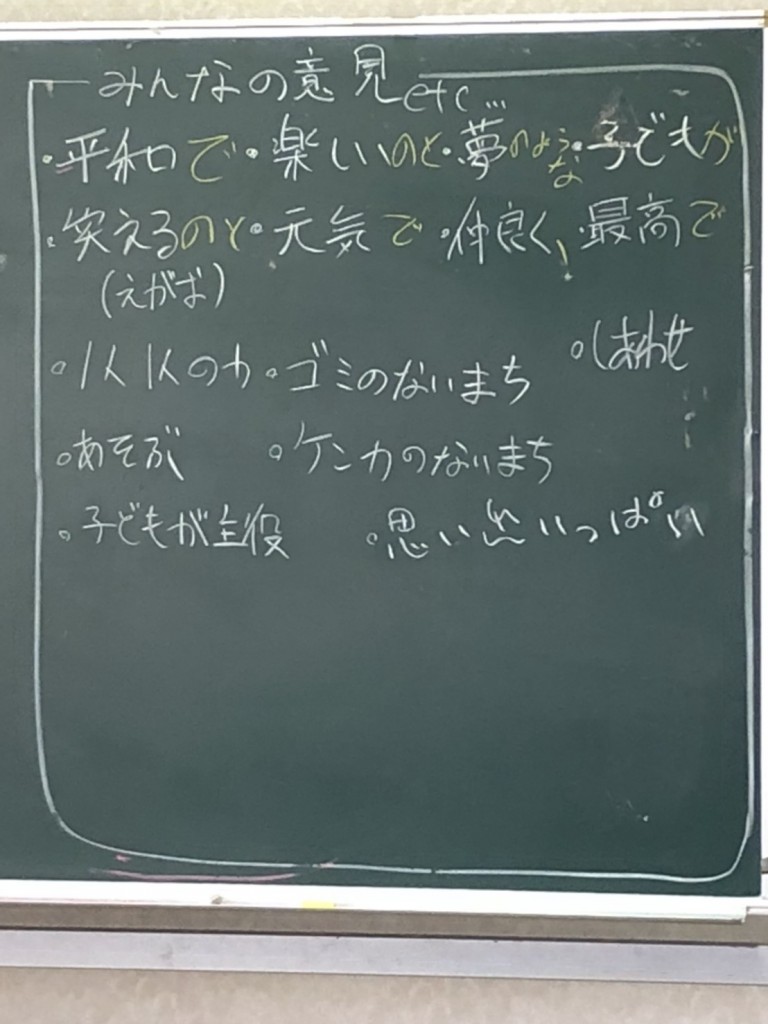 みんなの意見etc...
・平和で・楽しいのと・夢のような・子どもが
・笑えるのと・元気で・仲良く、・最高で
(えがお)
・しあわせ
・人人のわ・ゴミのないまち
・あそぶ ・ケンカのないまち
・子どもが主役 ・思い出いっぱい